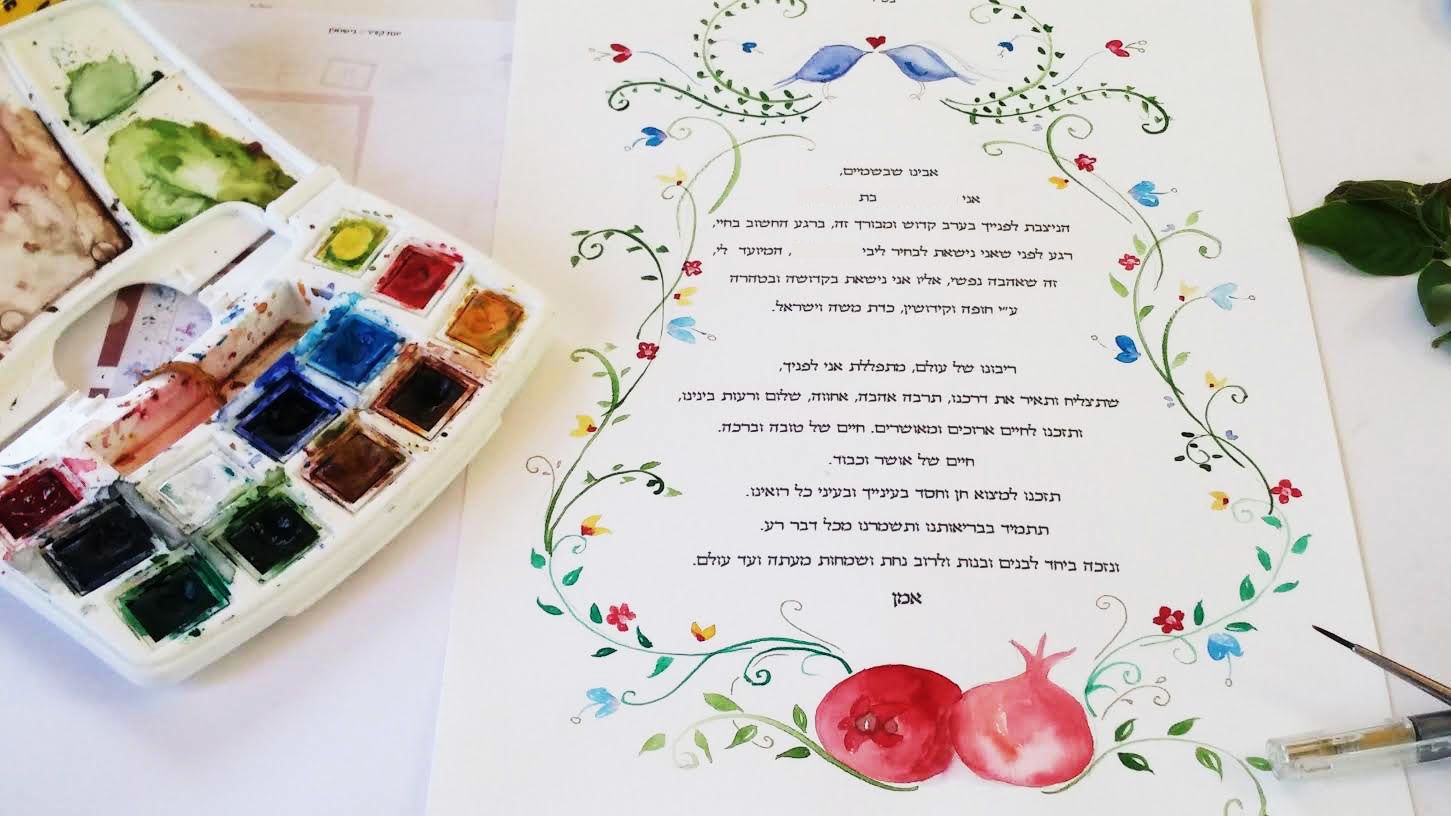 אבינו שבשמיים,
אני בת
הניצבת לפנייך בערב קדוש ומבורך זה, ברגע החשוב בחיי,
רגע לפני שאני נישאת לבחיר ליבי , המיועד לי,
זה שאהבה נפשי, אליו אני נישאת בקדושה ובטהרה
ע״י חופה וקידושין, כדת משה וישראל.
ריבונו של עולם, מתפללת אני לפניך,
שתצליח ותאיר את דרכנו, תרבה אהבה, אחווה, שלום ורעות בינינו,
ותזכנו לחיים ארוכים ומאושרים. חיים של טובה וברכה.
חיים של אושר וכבוד.
תזכנו למצוא חן וחסד בעינייך ובעיני כל רואינו.
תתמיד בבריאותנו ותשמרנו מכל דבר רע.
ונזכה ביחד לבנים ובנות ולרוב נחת ושמחות מעתה ועד עולם.
אמן